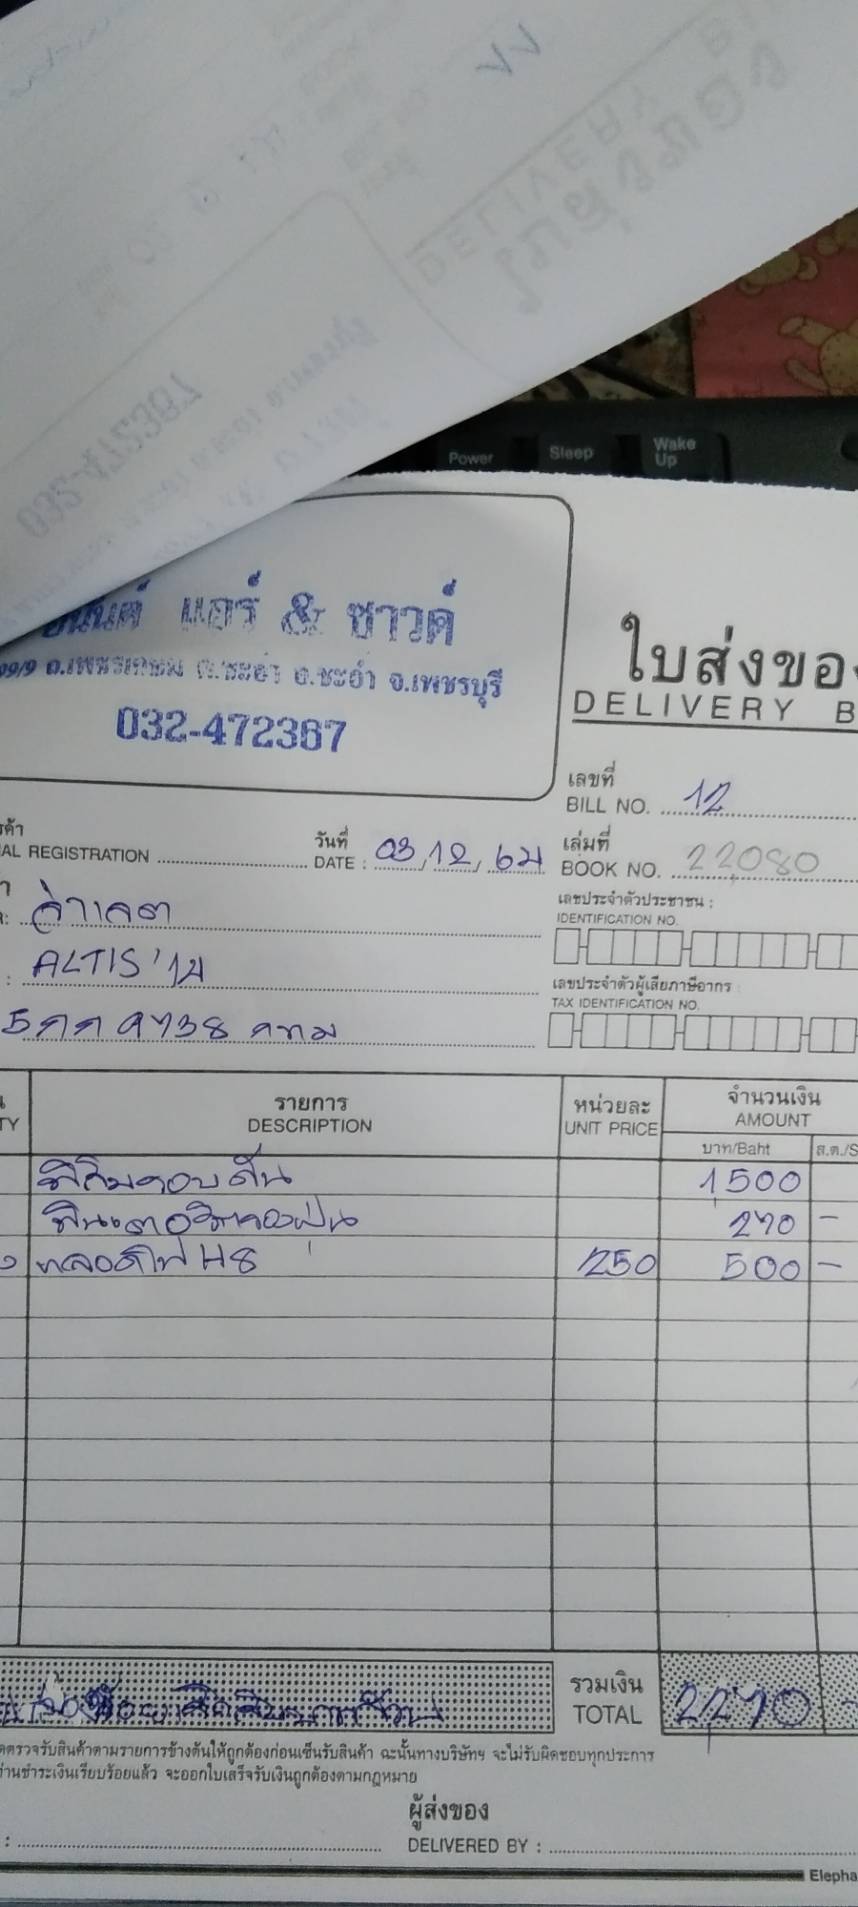 Power Sleep Wake Up
แอร์ & ซาวด์
99/9 ถ.เพชรเกษม ต.ชะอำ อ.ชะอำ จ.เพชรบุรี
032-472367
ใบส่งของ
DELIVERY B
เลขที่
BILL NO. 12
วันที่
DATE : 03, 12, 64
เล่มที่
BOOK NO. 22080
AL REGISTRATION
เลขประจำตัวประชาชน :
IDENTIFICATION NO.
ALTIS '14
เลขประจำตัวผู้เสียภาษีอากร :
TAX IDENTIFICATION NO.
5กก 9738 กทม
TY
รายการ
DESCRIPTION
หน่วยละ
UNIT PRICE
จำนวนเงิน
AMOUNT
บาท/Baht
ส.ต./S
ฟิล์มรอบคัน 1500
270 -
หลอดไฟ H8 250 500 -
รวมเงิน
TOTAL 2270 -
ตรวจรับสินค้าตามรายการข้างต้นให้ถูกต้องก่อนเซ็นรับสินค้า ฉะนั้นทางบริษัทฯ จะไม่รับผิดชอบทุกประการ
ท่านชำระเงินเรียบร้อยแล้ว จะออกใบเสร็จรับเงินถูกต้องตามกฎหมาย
ผู้ส่งของ
DELIVERED BY :
Elepha